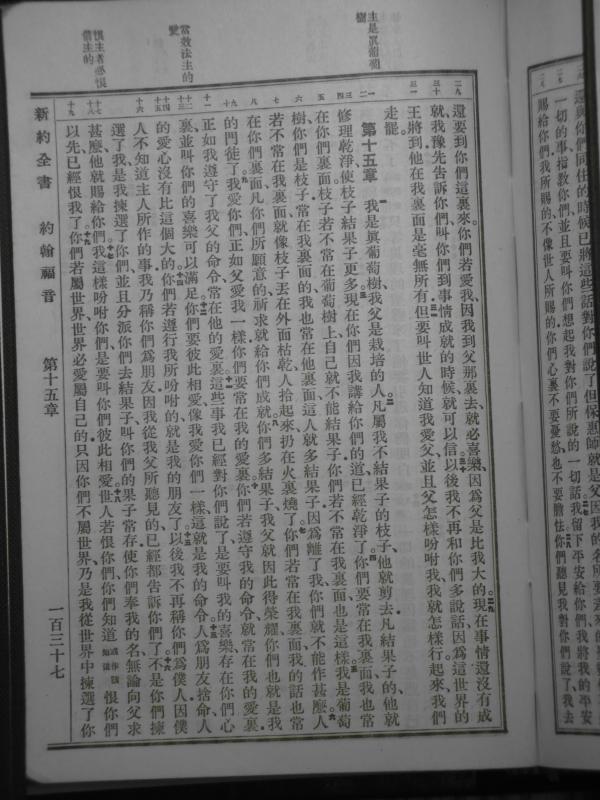 還與你們同住的時候已將這些話對你們說了但保惠師就是父因我的名所要差來的
一切的事指教你們並且要叫你們想起我對你們所說的一切話我留下平安給你們我將我的平安
賜給你們我所賜的不像世人所賜的你們心裏不要憂愁也不要膽怯你們聽見我對你們說了我去
還要到你們這裏來你們若愛我因我到父那裏去就必喜樂因爲父是比我大的現在事情還沒有成
就我豫先告訴你們叫你們到事情成就的時候就可以信以後我不再和你們多說話因爲這世界的
王將到他在我裏面是毫無所有但要叫世人知道我愛父並且父怎樣吩咐我我就怎樣行起來我們
走罷
第十五章
我是眞葡萄樹我父是栽培的人凡屬我不結果子的枝子他就剪去凡結果子的他就
修理乾淨使枝子結果子更多現在你們因我講給你們的道已經乾淨了你們要常在我裏面我也常
在你們裏面枝子若不常在葡萄樹上自己就不能結果子你們若不常在我裏面也是這樣我是葡萄
樹你們是枝子常在我裏面的我也常在他裏面這人就多結果子因爲離了我你們就不能作甚麼人
若不常在我裏面就像枝子丟在外面枯乾人拾起來扔在火裏燒了你們若常在我裏面我的話也常
在你們裏面凡你們所願意的祈求就給你們成就你們多結果子我父就因此得榮耀你們也就是我
的門徒了我愛你們正如父愛我一樣你們要常在我的愛裏你們若遵守我的命令就常在我的愛裏
正如我遵守了我父的命令常在他的愛裏這些事我已經對你們說了是要叫我的喜樂存在你們心
裏並叫你們的喜樂可以滿足你們要彼此相愛像我愛你們一樣這就是我的命令人爲朋友捨命人
的愛心沒有比這個大的你們若遵行我所吩咐的就是我的朋友了以後我不再稱你們爲僕人因僕
人不知道主人所作的事我乃稱你們爲朋友因我從我父所聽見的已經都告訴你們了不是你們揀
選了我是我揀選了你們並且分派你們去結果子叫你們的果子常存使你們奉我的名無論向父求
甚麼他就賜給你們我這樣吩咐你們是要叫你們彼此相愛世人若恨你們你們知道或作該知道恨你們
以先已經恨我了你們若屬世界世界必愛屬自己的只因你們不屬世界乃是我從世界中揀選了你
主是眞葡萄
樹
當效法主的
愛
恨主者必恨
屬主的
新約全書 約翰福音 第十五章 一百三十七